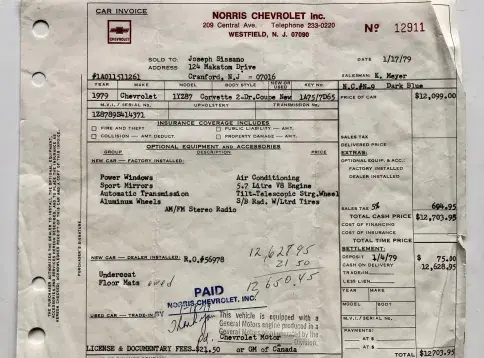 CAR INVOICE
NORRIS CHEVROLET Inc.
209 Central Ave. Telephone 233-0220
WESTFIELD, N. J. 07090
Nº 12911
CHEVROLET
SOLD TO: Joseph Sissano DATE 1/17/79
ADDRESS 124 Makatom Drive
#1A011511261 Cranford, N.J = 07016 SALESMAN K. Meyer
YEAR MAKE MODEL BODY STYLE NEW OR USED KEY NO. Dark Blue
1979 Chevrolet 1YZ87 Corvette 2-Dr.Coupe New 1A75/7D65 PRICE OF CAR $12,099.00
M.V.I. / SERIAL No. UPHOLSTERY TRANSMISSION No.
1Z8789S414371
INSURANCE COVERAGE INCLUDES
FIRE AND THEFT PUBLIC LIABILITY — AMT.
COLLISION — AMT. DEDUCT PROPERTY DAMAGE — AMT. SALES TAX
OPTIONAL EQUIPMENT AND ACCESSORIES DELIVERED PRICE
GROUP DESCRIPTION PRICE EXTRAS:
NEW CAR — FACTORY INSTALLED: OPTIONAL EQUIP. & ACC.:
FACTORY INSTALLED
Power Windows Air Conditioning DEALER INSTALLED
Sport Mirrors 5.7 Litre V8 Engine
Automatic Transmission Tilt-Telescopic Strg.Wheel
Aluminum Wheels S/B Rad. W/Ltrd Tires
AM/FM Stereo Radio SALES TAX 5% 604.95
TOTAL CASH PRICE $12,703.95
COST OF FINANCING
COST OF INSURANCE
TOTAL TIME PRICE
NEW CAR — DEALER INSTALLED: R.O.#56978 SETTLEMENT:
12,628.95 DEPOSIT 1/4/79 $ 75.00
21.50 CASH ON DELIVERY 12,628.95
Undercoat 12650.45 TRADE-IN
Floor Mats owed LESS LIEN
PAID YEAR MAKE
NORRIS CHEVROLET, INC.
MODEL BODY
USED CAR — TRADE-IN BY This vehicle is equipped with a
Thank you General Motors engine produced in a M.V.I. / SERIAL No.
General Motors
Division. PAYMENTS:
Chevrolet Motor AT $
LICENSE & DOCUMENTARY FEES-$21.50 or GM of Canada AT $
TOTAL $12703.95
PURCHASER'S SIGNATURE